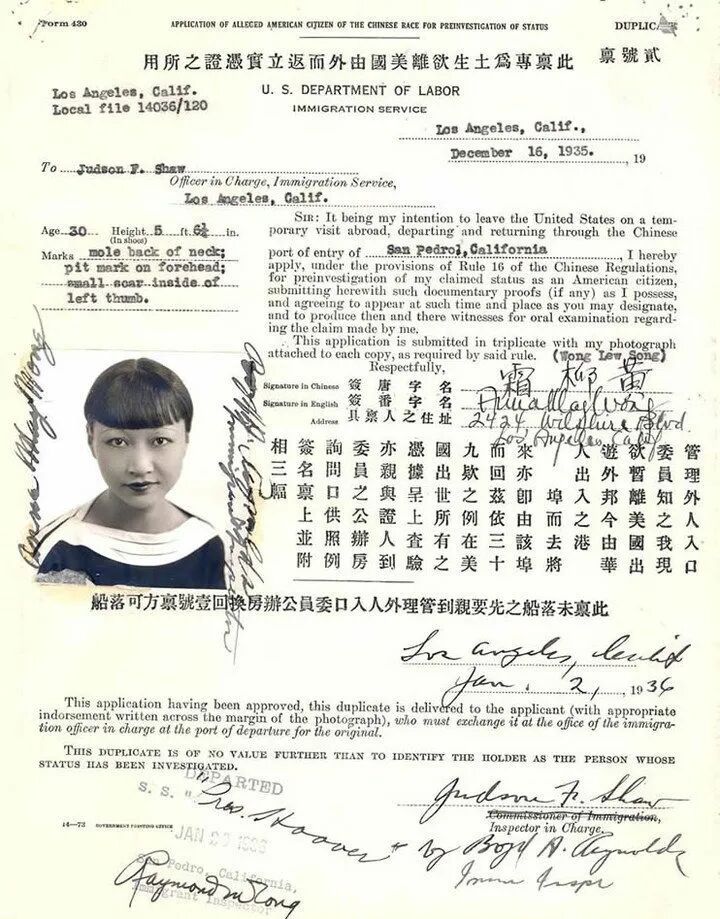 Form 430
APPLICATION OF ALLEGED AMERICAN CITIZEN OF THE CHINESE RACE FOR PREINVESTIGATION OF STATUS
DUPLICATE
貳號禀
此禀專爲土生欲離美國由外而返立實憑證之所用
Los Angeles, Calif.
Local file 14036/120
U. S. DEPARTMENT OF LABOR
IMMIGRATION SERVICE
Los Angeles, Calif.,
December 16, 1935. , 19
To Judson F. Shaw
Officer in Charge, Immigration Service,
Los Angeles, Calif.
Age 30 Height 5 ft. 6½ in.
(In shoes)
Marks mole back of neck;
pit mark on forehead;
small scar inside of
left thumb.
SIR: It being my intention to leave the United States on a tem-
porary visit abroad, departing and returning through the Chinese
port of entry of San Pedro, California , I hereby
apply, under the provisions of Rule 16 of the Chinese Regulations,
for preinvestigation of my claimed status as an American citizen,
submitting herewith such documentary proofs (if any) as I possess,
and agreeing to appear at such time and place as you may designate,
and to produce then and there witnesses for oral examination regard-
ing the claim made by me.
This application is submitted in triplicate with my photograph
attached to each copy, as required by said rule. (Wong Lew Song)
Respectfully,
Signature in Chinese 簽唐字名 黃柳霜
Signature in English 簽番字名 Anna May Wong
Address 具禀人之住址 2424 Wilshire Blvd.
Los Angeles Calif
Anna May Wong
管理外人入口
欲暫離美國出
憑據呈上查驗
亦親與證人到
詢問口供照例
簽名禀上並附
相三幅
此禀未落船之先要親到管理外人入口委員公辦房換回壹號禀方可落船
Los Angeles, Calif
Jan. 2, 1936
This application having been approved, this duplicate is delivered to the applicant (with appropriate
indorsement written across the margin of the photograph), who must exchange it at the office of the immigra-
tion officer in charge at the port of departure for the original.
THIS DUPLICATE IS OF NO VALUE FURTHER THAN TO IDENTIFY THE HOLDER AS THE PERSON WHOSE
STATUS HAS BEEN INVESTIGATED.
DEPARTED
S. S. "Pres. Hoover"
Judson F. Shaw
Commissioner of Immigration,
Inspector in Charge.
14—73 GOVERNMENT PRINTING OFFICE
by Boyd H. Reynolds
Imm Insp
San Pedro, California,
Immigrant Inspector